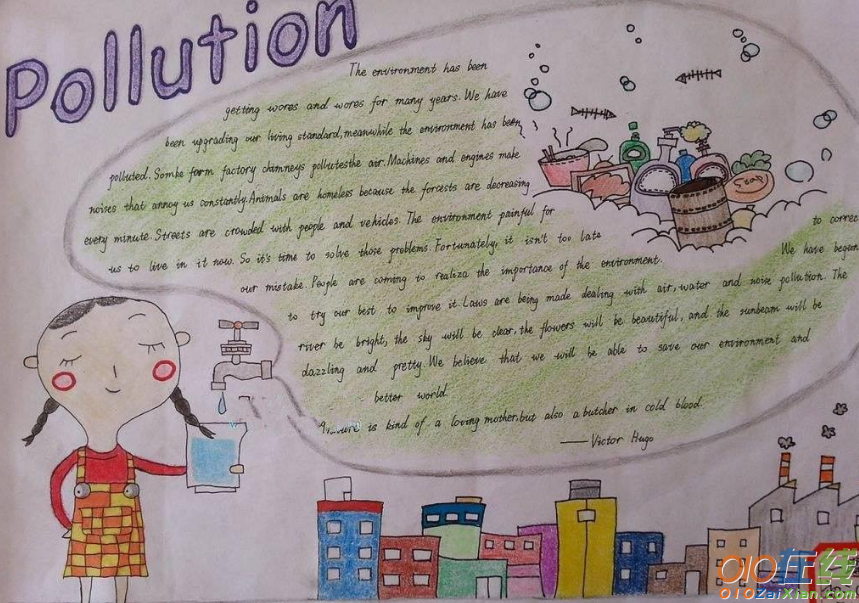 Pollution
The environment has been
getting wores and wores for many years. We have
been upgrading our living standard, meanwhile the environment has been
polluted. Somke form factory chimneys pollutesthe air. Machines and engines make
noises that annoy us constantly. Animals are homeless because the forcests are decreasing
every minute. Streets are crowded with people and vehicles. The environment painful for
us to live in it now. So it's time to solve those problems. Fortunately, it isn't too late to correc
our mistake. People are coming to realiza the importance of the environment. We have begun
to try our best to improve it. Laws are being made dealing with air, water and noise pollution. The
river be bright, the sky will be clear, the flowers will be beautiful, and the sunbeam will be
dazzling and pretty. We believe that we will be able to save our environment and
better world.
is kind of a loving mother, but also a butcher in cold blood.
——Victor Hugo
Soap
010在线
010ZaiXian.com